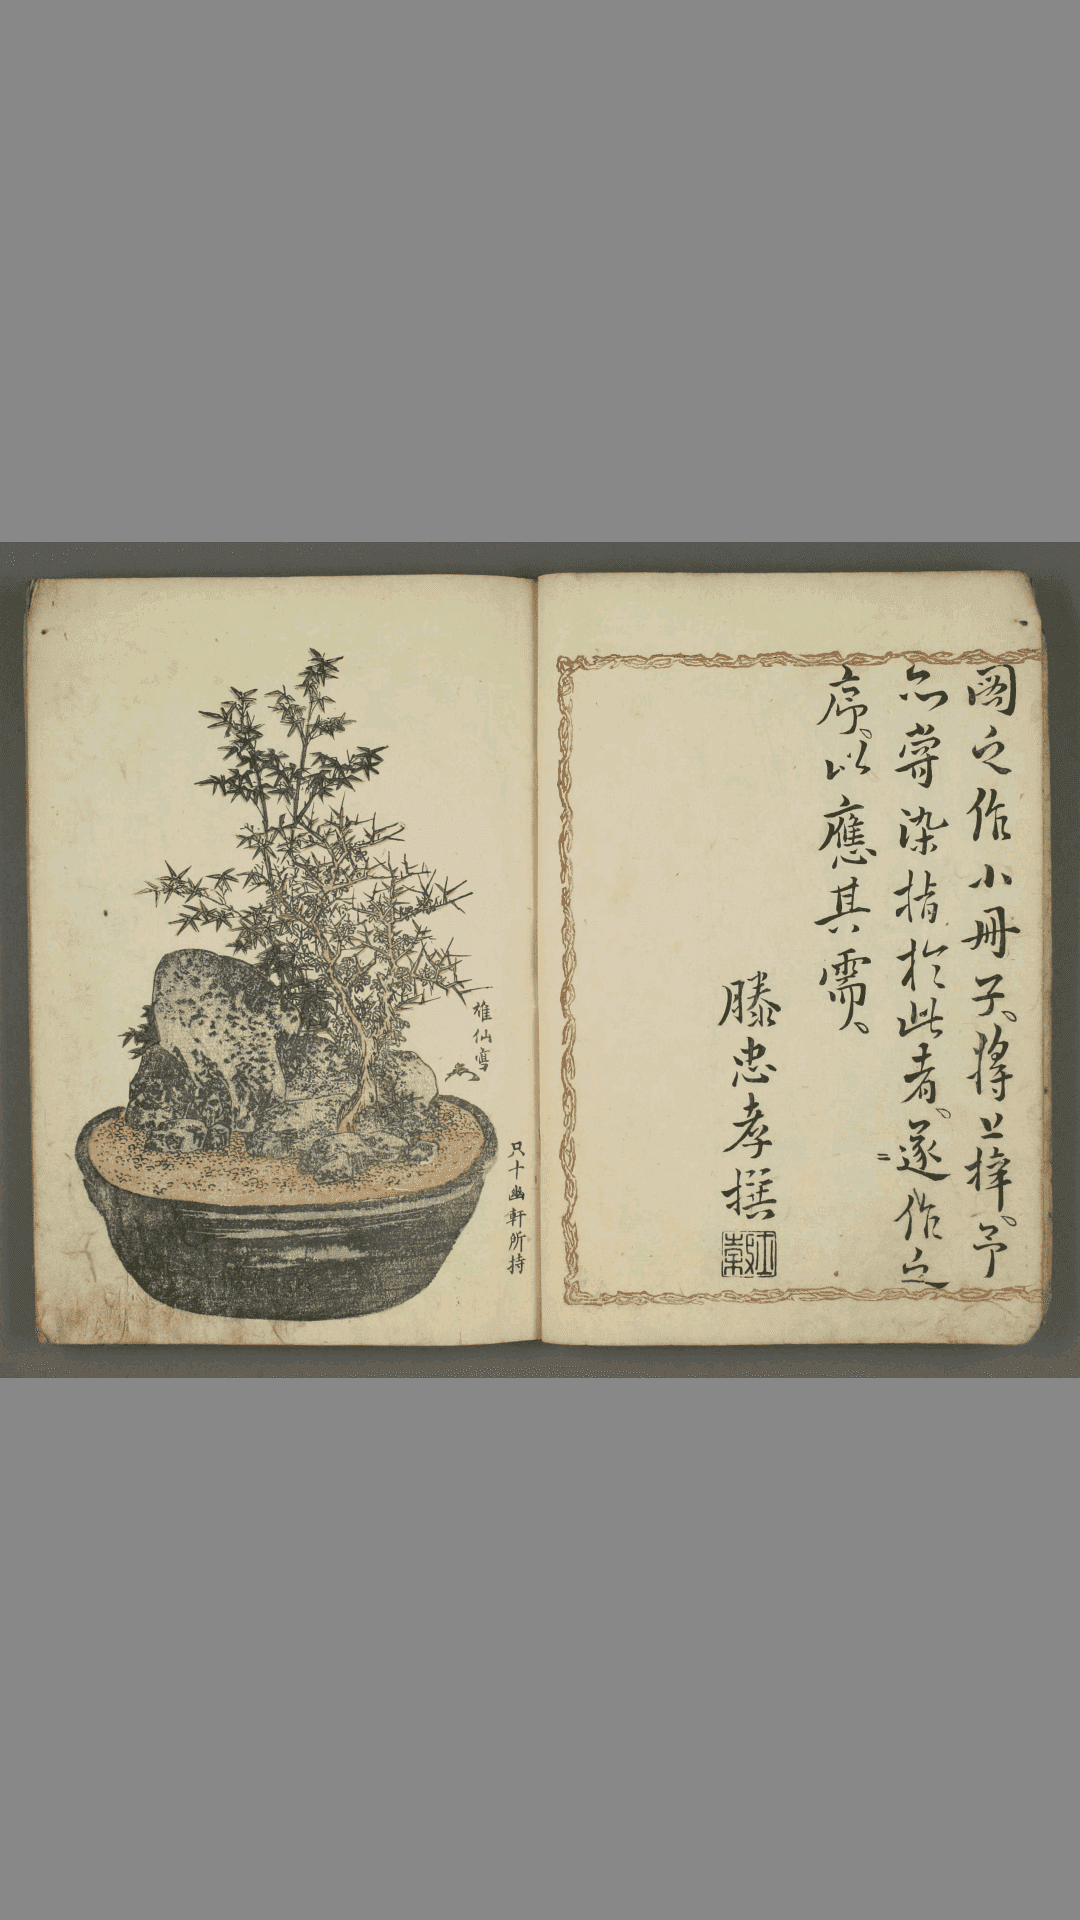 図之作小冊子。将上梓。予
亦嘗染指於此者。遂作之
序。以應其需。
滕忠孝撰
雄仙寫
只十幽軒所持